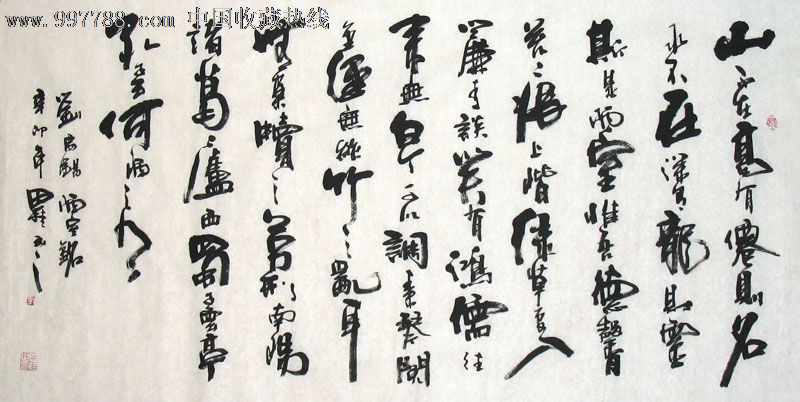 www.997788.com 中国收藏热线
山不在高有僊則名
水不在深有龍則靈
斯是陋室惟吾德馨
苔痕上階綠草色入
簾青談笑有鴻儒往
來無白丁可以調素琴閱
金經無絲竹之亂耳
無案牘之勞形南陽
諸葛廬西蜀子雲亭
孔子云何陋之有
劉禹錫陋室銘
辛卯年